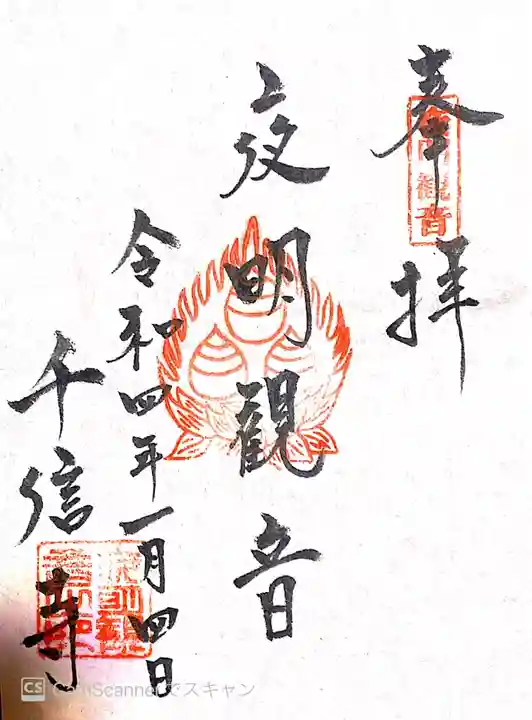 奉拝
夜明観音
令和四年一月四日
千信寺
CS CamScannerでスキャン